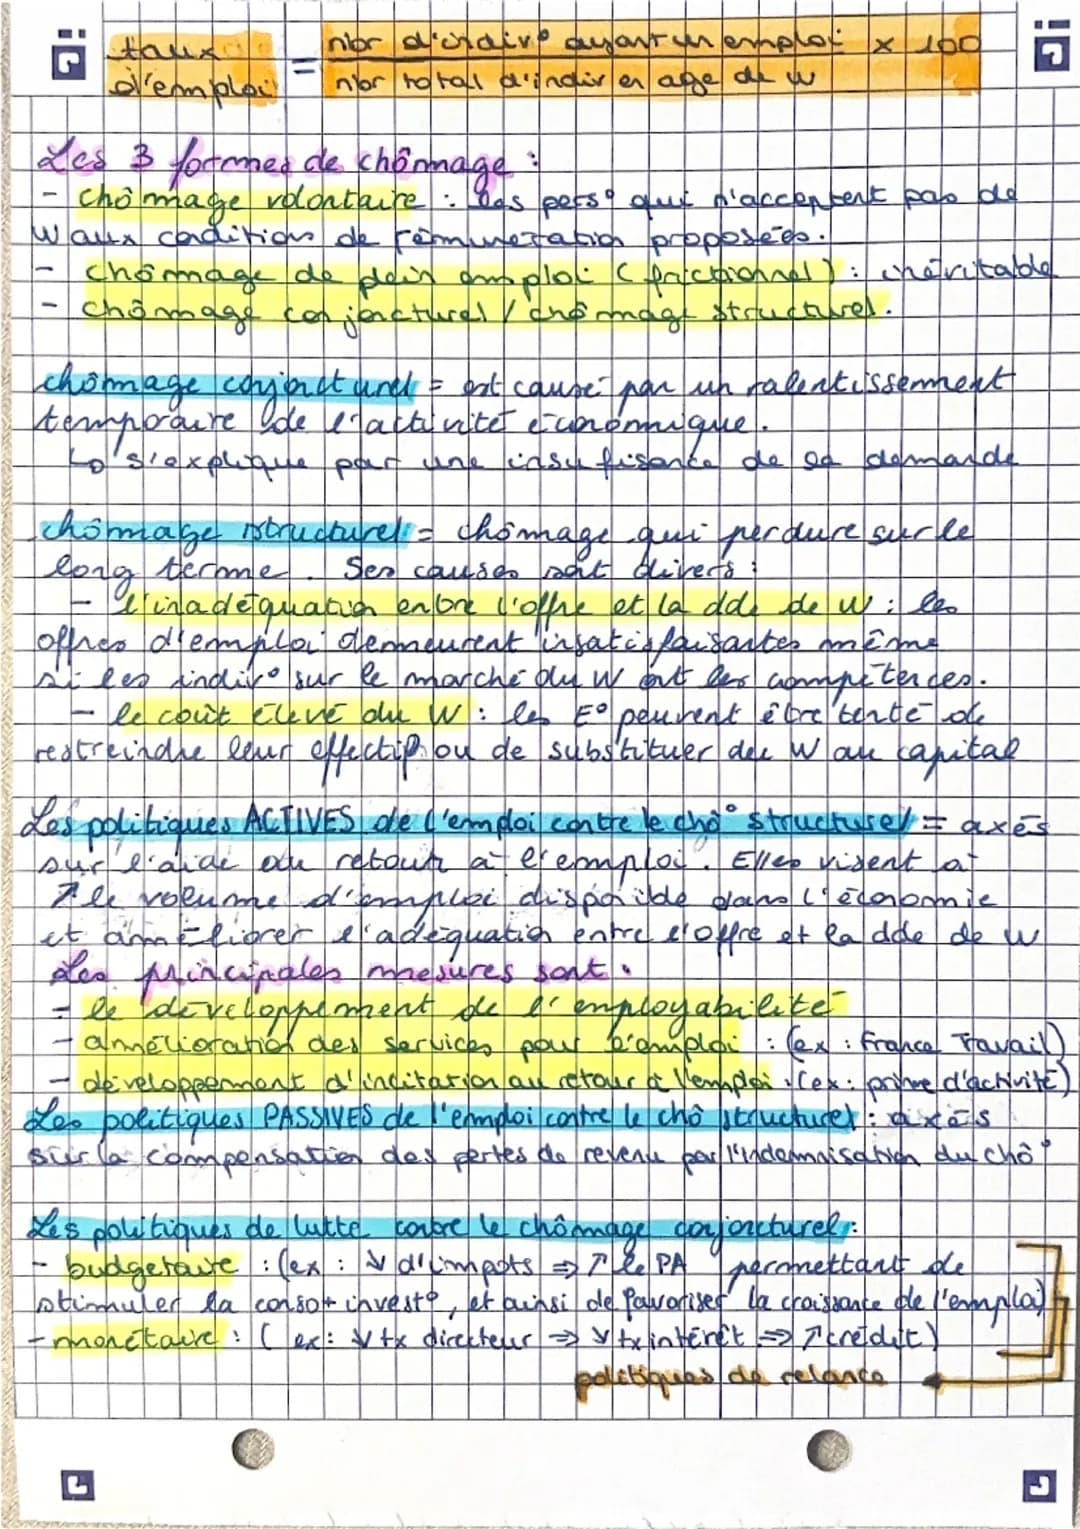 taux d'emploi = nbr d'indiv° ayant un emploi x 100
nbr total d'indiv en age de W
Les 3 formes de chômage :
- chômage volontaire : les pers° qui n'acceptent pas de
W aux conditions de rémunération proposées.
- chômage de plein emploi (frictionnel) : inévitable
- chômage conjoncturel / chômage structurel.
chômage conjoncturel = est causé par un ralentissement
temporaire de l'activité économique.
↳ s'explique par une insuffisance de la demande
chômage structurel = chômage qui perdure sur le
long terme. Ses causes sont divers :
- l'inadéquation entre l'offre et la dde de W : les
offres d'emploi demeurent insatisfaisantes même
si les indiv° sur le marché du W ont les compétences.
- le coût élevé du W : les E° peuvent être tenté de
restreindre leur effectif ou de substituer du W au capital
Les politiques ACTIVES de l'emploi contre le chô° structurel = axés
sur l'aide au retour à l'emploi. Elles visent à
↗ le volume d'emploi disponible dans l'économie
et améliorer l'adéquation entre l'offre et la dde de W
Les principales mesures sont :
- le développement de l'employabilité
- amélioration des services pour l'emploi : (ex : France Travail)
- développement d'incitation au retour à l'emploi : (ex : prime d'activité)
Les politiques PASSIVES de l'emploi contre le chô structurel : axés
sur la compensation des pertes de revenu par l'indemnisation du chô°
Les politiques de lutte contre le chômage conjoncturel :
- budgétaire : (ex : ↓ d'impots ⇒ ↗ le PA permettant de
stimuler la conso + invest°, et ainsi de favoriser la croissance de l'emploi)
- monétaire : (ex : ↓ tx directeur ⇒ ↓ tx intérêt ⇒ ↗ crédit)
politiques de relance